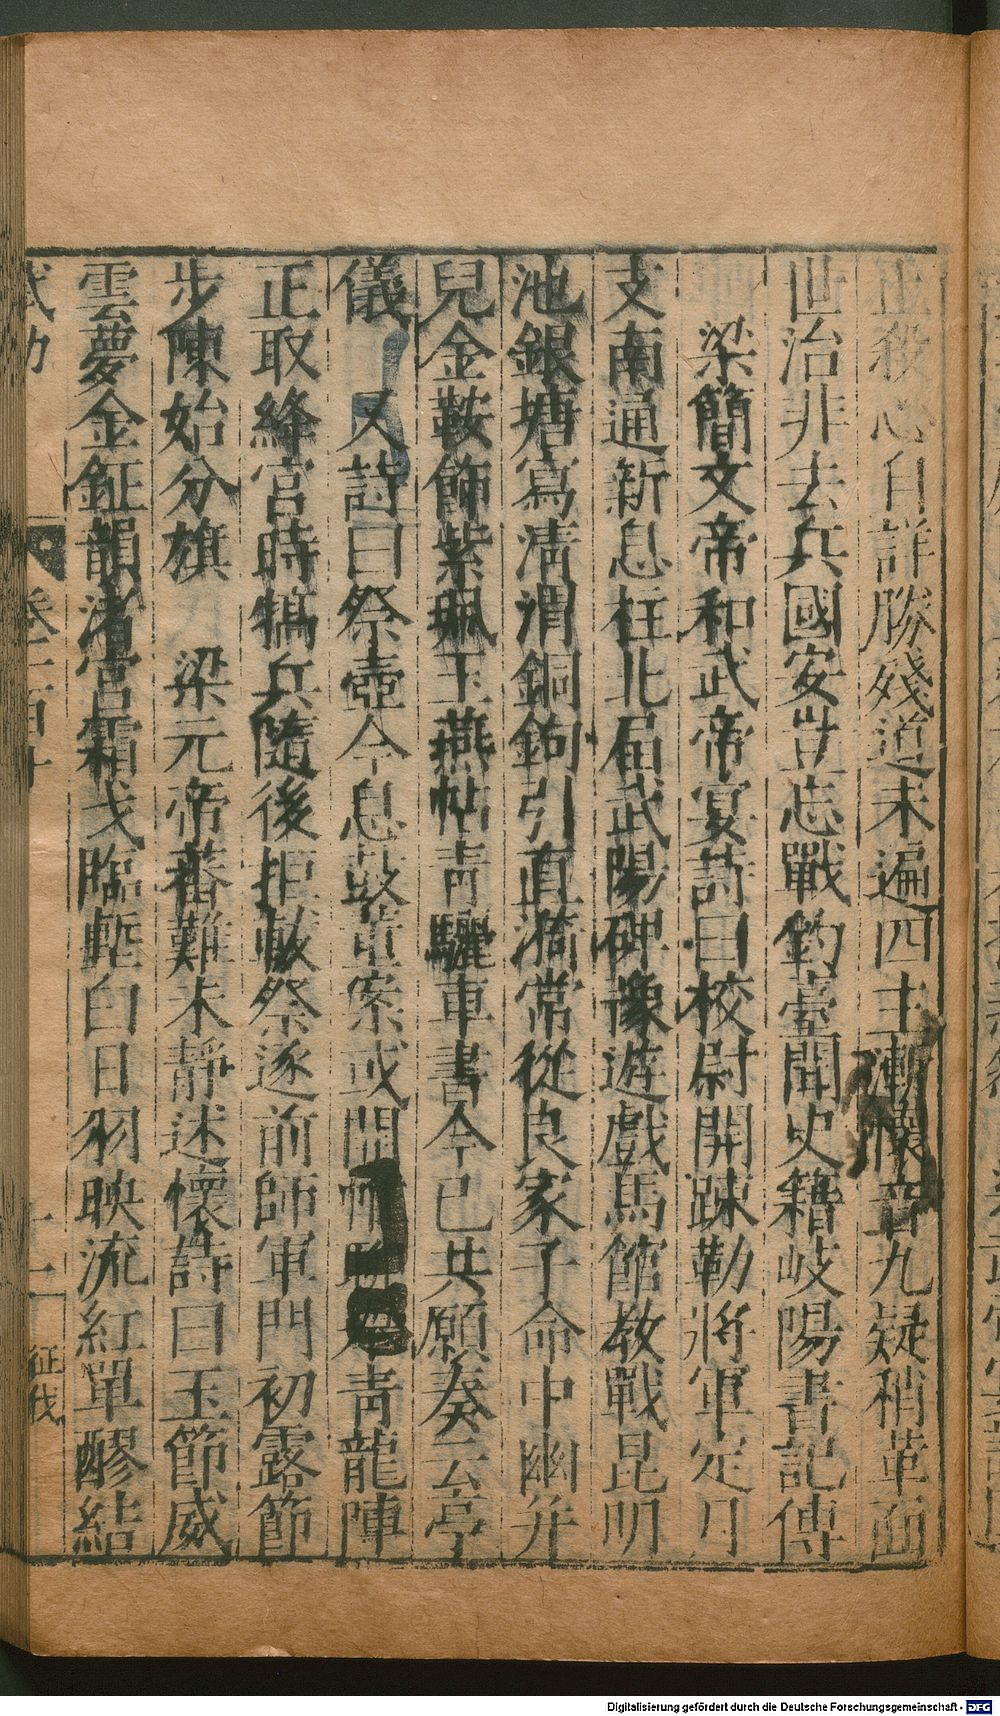 殺心自詳勝殘道未遍四主漸懷音九疑稍革面
世治非去兵國安豈忘戰釣臺聞史籍岐陽書記傳
梁簡文帝和武帝宴詩曰校尉開踈勒將軍定月
支南通新息柱北屆武陽碑豫遊戲馬館教戰昆明
池銀塘寫清渭銅鉤引直漪常從良家子命中幽并
兒金鞍飾紫珮玉燕帖青驪車書今已共願奏云亭
儀 又詩曰祭壺今息鼓董案或開帷 青龍陣
正取絳宮時犒兵隨後拒軷祭逐前師軍門初露節
步陳始分旗 梁元帝藩難未靜述懷詩曰玉節威
雲夢金鉦韻渚宮霜戈臨塹白日羽映流紅單醪結
武功 卷 百十 十一 征伐
Digitalisierung gefördert durch die Deutsche Forschungsgemeinschaft - DFG